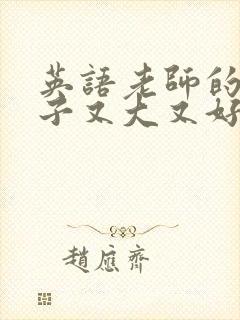 英語老師的
子又大又好
趙應齊